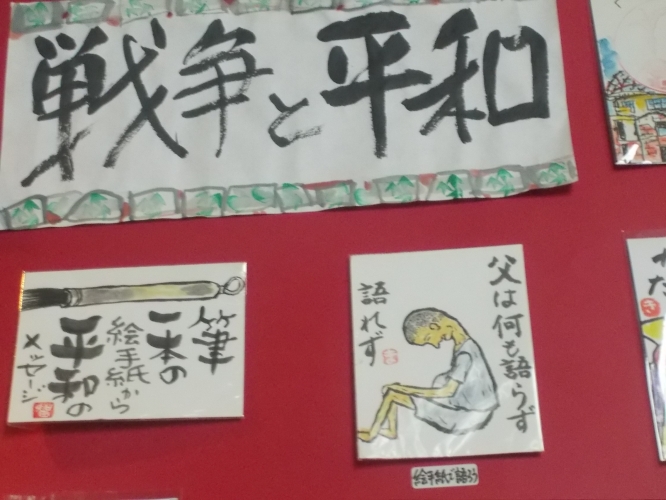 戦争と平和
筆
一本の
絵手紙から
平和の
メッセージ
父は何も語らず
語れず
絵手紙で語ろう